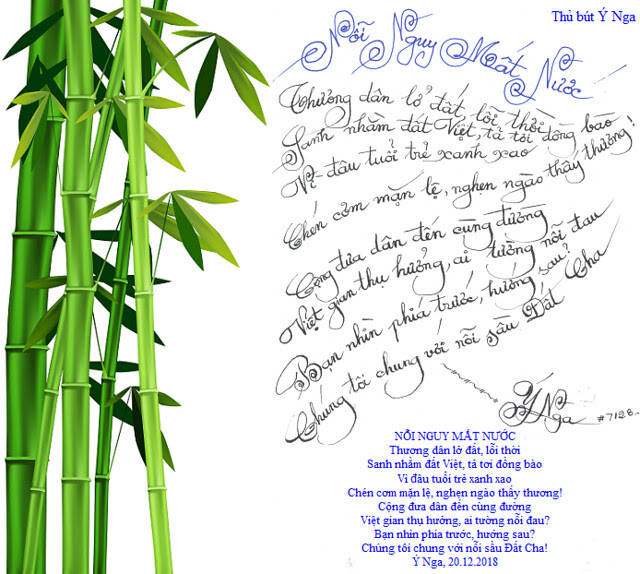 Thủ bút Ý Nga
Nỗi Nguy Mất Nước
Thương dân lở đất, lỗi thời
Sanh nhầm đất Việt, tả tơi đồng bào
Vì đâu tuổi trẻ xanh xao
Chén cơm mặn lệ, nghẹn ngào thấy thương!
Cộng đưa dân đến cùng đường
Việt gian thụ hưởng, ai tường nỗi đau
Bạn nhìn phía trước, hướng sau?
Chúng tôi chung với nỗi sầu Đất Cha
Ý Nga
#7128.
NỖI NGUY MẤT NƯỚC
Thương dân lở đất, lỗi thời
Sanh nhầm đất Việt, tả tơi đồng bào
Vì đâu tuổi trẻ xanh xao
Chén cơm mặn lệ, nghẹn ngào thấy thương!
Cộng đưa dân đến cùng đường
Việt gian thụ hưởng, ai tường nỗi đau?
Bạn nhìn phía trước, hướng sau?
Chúng tôi chung với nỗi sầu Đất Cha!
Ý Nga, 20.12.2018